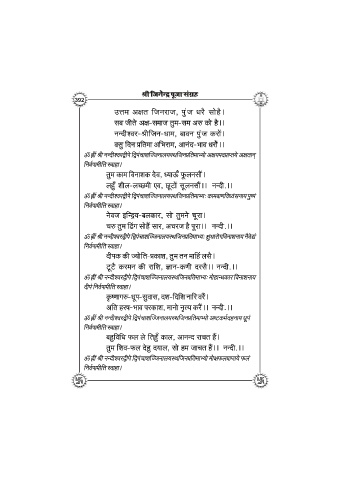 श्री जिनेन्द्र पूजा संग्रह
392
उत्तम अक्षत जिनराज, पुंज धरै सोहै।
सब जीते अक्ष-समाज तुम-सम अरु को है।।
नन्दीश्वर-श्रीजिन-धाम, बावन पुंज करों।
वसु दिन प्रतिमा अभिराम, आनंद-भाव धरों।।
ॐ ह्रीं श्री नन्दीश्वरद्वीपे द्विपंचाशज्जिनालयस्थजिनप्रतिमाभ्यो अक्षयपदप्राप्तये अक्षतान्
निर्वपामीति स्वाहा।
तुम काम विनाशक देव, ध्याऊँ फूलनसौं।
लहुँ शील-लच्छमी एव, छूटों सूलनसौं।। नन्दी.।।
ॐ ह्रीं श्री नन्दीश्वरद्वीपे द्विपंचाशज्जिनालयस्थजिनप्रतिमाभ्यः कामबाणविध्वंसनाय पुष्पं
निर्वपामीति स्वाहा।
नेवज इन्द्रिय-बलकार, सो तुमने चूरा।
चरु तुम ढिंग सोहैं सार, अचरज है पूरा।। नन्दी.।।
ॐ ह्रीं श्री नन्दीश्वरद्वीपे द्विपंचाशज्जिनालयस्थजिनप्रतिमाभ्यः क्षुधारोगविनाशनाय नैवेद्यं
निर्वपामीति स्वाहा।
दीपक की ज्योति-प्रकाश, तुम तन माहिं लसै।
टूटै करमन की राशि, ज्ञान-कणी दरसै।। नन्दी.।।
ॐ ह्रीं श्री नन्दीश्वरद्वीपे द्विपंचाशज्जिनालयस्थजिनप्रतिमाभ्यः मोहान्धकार विनाशनाय
दीपं निर्वपामीति स्वाहा।
कृष्णागरु-धूप-सुवास, दश-दिशि नारि वरैं।
अति हरष-भाव परकाश, मानो नृत्य करैं।। नन्दी.।।
ॐ ह्रीं श्री नन्दीश्वरद्वीपे द्विपंचाशज्जिनालयस्थजिनप्रतिमाभ्यो अष्टकर्मदहनाय धूपं
निर्वपामीति स्वाहा।
बहुविधि फल ले तिहुँ काल, आनन्द राचत हैं।
तुम शिव-फल देहु दयाल, सो हम जाचत हैं।। नन्दी.।।
ॐ ह्रीं श्री नन्दीश्वरद्वीपे द्विपंचाशज्जिनालयस्थजिनप्रतिमाभ्यो मोक्षफलप्राप्तये फलं
निर्वपामीति स्वाहा।